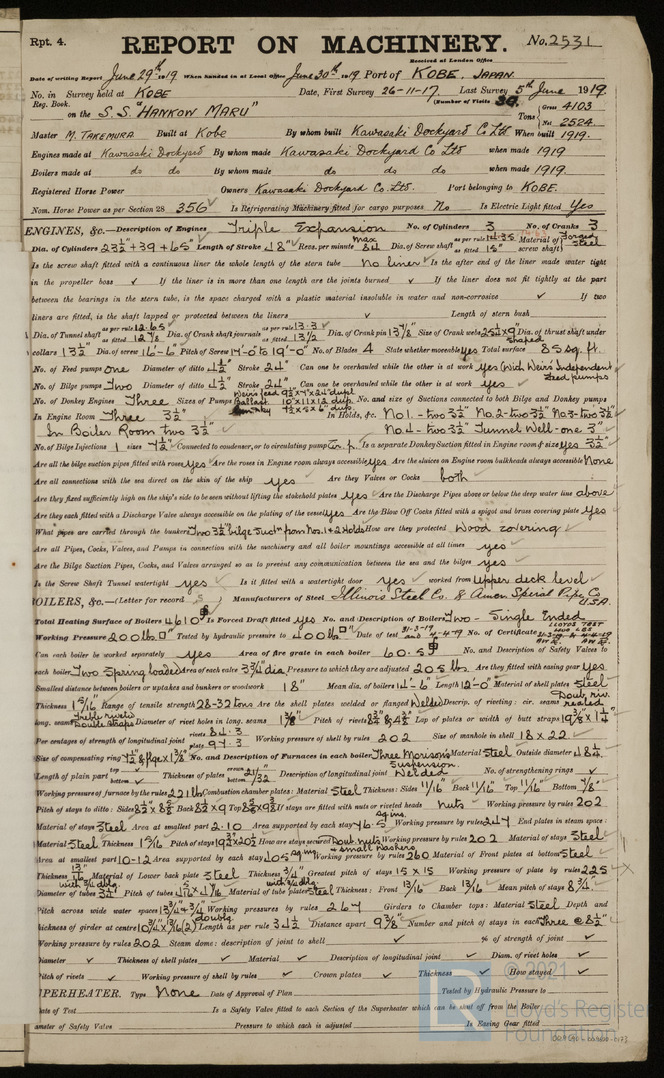 Rpt. 4. REPORT ON MACHINERY. No. 2531
Received at London Office
Date of writing Report June 29th 1919 When handed in at Local Office June 30th 1919. Port of KOBE. JAPAN.
No. in Survey held at KOBE Date, First Survey 26-11-17. Last Survey 5th June 1919.
Reg. Book. (Number of Visits 39.
on the S.S. "HANKOW MARU" Tons Gross 4103 Net 2524
Master M. TAKEMURA Built at Kobe By whom built Kawasaki Dockyard Co Ltd When built 1919.
Engines made at Kawasaki Dockyard By whom made Kawasaki Dockyard Co Ltd when made 1919
Boilers made at do do By whom made do do do when made 1919.
Registered Horse Power Owners Kawasaki Dockyard Co. Ltd. Port belonging to KOBE.
Nom. Horse Power as per Section 28 356 Is Refrigerating Machinery fitted for cargo purposes No Is Electric Light fitted Yes
ENGINES, &c.—Description of Engines Triple Expansion No. of Cylinders 3 No. of Cranks 3
Dia. of Cylinders 23½"+39+65" Length of Stroke 48" Revs. per minute max 84 Dia. of Screw shaft as per rule as fitted 15" Material of screw shaft Forged Steel
Is the screw shaft fitted with a continuous liner the whole length of the stern tube No liner Is the after end of the liner made water tight
in the propeller boss ✓ If the liner is in more than one length are the joints burned ✓ If the liner does not fit tightly at the part
between the bearings in the stern tube, is the space charged with a plastic material insoluble in water and non-corrosive ✓ If two
liners are fitted, is the shaft lapped or protected between the liners ✓ Length of stern bush
Dia. of Tunnel shaft as per rule 12.65 as fitted 12⅞ Dia. of Crank shaft journals as per rule 13.3 as fitted 13½ Dia. of Crank pin 13⅞" Size of Crank webs 25½ x 9" shaped Dia. of thrust shaft under
collars 13½" Dia. of screw 16'-6" Pitch of Screw 14'-0" to 19'-0" No. of Blades 4 State whether moveable Yes Total surface 85 sq. ft.
No. of Feed pumps one Diameter of ditto 4½" Stroke 24" Can one be overhauled while the other is at work yes (with Weirs Independent feed pumps
No. of Bilge pumps Two Diameter of ditto 4½" Stroke 24" Can one be overhauled while the other is at work yes
No. of Donkey Engines Three Sizes of Pumps No. and size of Suctions connected to both Bilge and Donkey pumps
In Engine Room Three 3½" In Holds, &c. No 1.- two 3½" No.2-two 3½" No 3-two 3½"
In Boiler Room two 3½" No.4.- two 3½" Tunnel Well-one 3"
No. of Bilge Injections 1 sizes 7½" Connected to condenser, or to circulating pump Cir. p. Is a separate Donkey Suction fitted in Engine room & size yes 3½"
Are all the bilge suction pipes fitted with roses Yes Are the roses in Engine room always accessible yes Are the sluices on Engine room bulkheads always accessible None
Are all connections with the sea direct on the skin of the ship yes Are they Valves or Cocks both
Are they fixed sufficiently high on the ship's side to be seen without lifting the stokehold plates yes Are the Discharge Pipes above or below the deep water line above
Are they each fitted with a Discharge Valve always accessible on the plating of the vessel yes Are the Blow Off Cocks fitted with a spigot and brass covering plate yes
What pipes are carried through the bunkers Two 3½" bilge Suct" from Nos. 1 & 2 Holds How are they protected Wood covering
Are all Pipes, Cocks, Valves, and Pumps in connection with the machinery and all boiler mountings accessible at all times yes
Are the Bilge Suction Pipes, Cocks, and Valves arranged so as to prevent any communication between the sea and the bilges yes
Is the Screw Shaft Tunnel watertight yes Is it fitted with a watertight door yes worked from upper deck level
BOILERS, &c.—(Letter for record S) Manufacturers of Steel Illinois Steel Co. & Amer Spiral Pipe Co U.S.A.
Total Heating Surface of Boilers 4610 Is Forced Draft fitted yes No. and Description of Boilers Two - Single Ended
Working Pressure 200 lbs Tested by hydraulic pressure to 400 lbs Date of test 31-3-19 and 4-4-19 No. of Certificate
Can each boiler be worked separately yes Area of fire grate in each boiler 60.5 No. and Description of Safety Valves to
each boiler Two Spring loaded Area of each valve 3¾ dia. Pressure to which they are adjusted 205 lbs. Are they fitted with easing gear yes
Smallest distance between boilers or uptakes and bunkers or woodwork 18" Mean dia. of boilers 14'-6" Length 12'-0" Material of shell plates Steel
Thickness 1 5/16 Range of tensile strength 28-32 tons Are the shell plates welded or flanged Welded Descrip. of riveting: cir. seams Doub. riv.
long. seams Treble riveted Double straps Diameter of rivet holes in long. seams 1⅜" Pitch of rivets Lap of plates or width of butt straps
Per centages of strength of longitudinal joint rivets plate Working pressure of shell by rules 202 Size of manhole in shell 18 x 22
Size of compensating ring No. and Description of Furnaces in each boiler Three Morison's Suspension Material Steel Outside diameter 48¼
Length of plain part top bottom Thickness of plates crown bottom 21/32 Description of longitudinal joint Welded No. of strengthening rings ✓
Working pressure of furnace by the rules 221 lb Combustion chamber plates: Material Steel Thickness: Sides 11/16" Back 11/16" Top 11/16" Bottom ⅞"
Pitch of stays to ditto: Sides Back 8½ x 9 Top If stays are fitted with nuts or riveted heads nuts Working pressure by rules 202
Material of stays Steel Area at smallest part 2.10 Area supported by each stay 76.5 sq ins. Working pressure by rules 247 End plates in steam space:
Material Steel Thickness 1 5/16 Pitch of stays How are stays secured Doub. nuts small washers Working pressure by rules 202 Material of stays Steel
Area at smallest part 10-12 Area supported by each stay 405 sq ins Working pressure by rules 260 Material of Front plates at bottom Steel
Thickness Material of Lower back plate Steel Thickness Greatest pitch of stays 15 x 15 Working pressure of plate by rules 225
Diameter of tubes 3¼" Pitch of tubes Material of tube plates Steel Thickness: Front 13/16 Back 13/16 Mean pitch of stays 8¾
Pitch across wide water spaces Working pressures by rules 267 Girders to Chamber tops: Material Steel Depth and
thickness of girder at centre Length as per rule 34½ Distance apart 9⅜" Number and pitch of stays in each Three @ 8½"
Working pressure by rules 202 Steam dome: description of joint to shell ✓ % of strength of joint ✓
Diameter ✓ Thickness of shell plates ✓ Material ✓ Description of longitudinal joint ✓ Diam. of rivet holes ✓
Pitch of rivets ✓ Working pressure of shell by rules ✓ Crown plates ✓ Thickness ✓ How stayed ✓
SUPERHEATER. Type None Date of Approval of Plan Tested by Hydraulic Pressure to
Date of Test Is a Safety Valve fitted to each Section of the Superheater which can be shut off from the Boiler
Diameter of Safety Valve Pressure to which each is adjusted Is Easing Gear fitted
© 2021
Lloyd's Register
Foundation